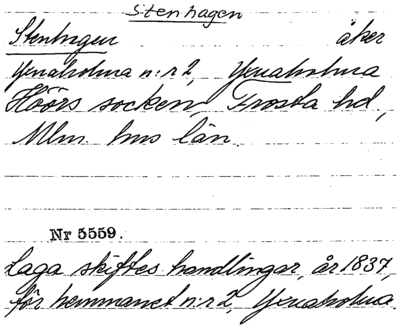 Stenhagen
Stenhagen åker
Yxnaholma n:r 2, Yxnaholma
Höörs socken, Frosta hd,
Mlm hus län.
Nr 5559.
Laga skiftes handlingar, år 1837,
för hemmanet n:r 2, Yxnaholma.